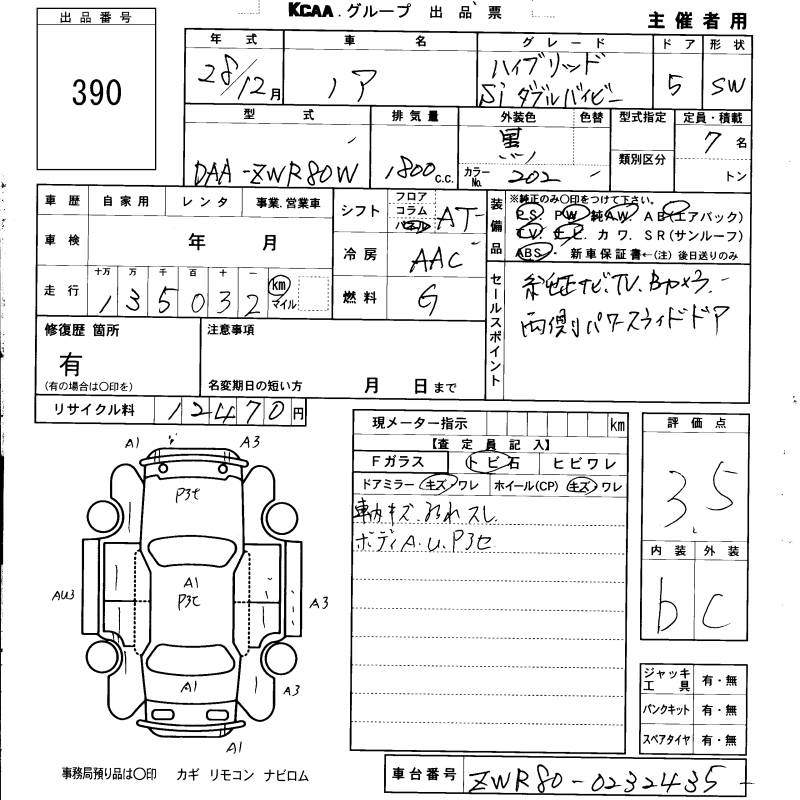 KCAA グループ 出品票
主催者用
出品番号
390
年式 車名 グレード ドア 形状
28/12月 ノア ハイブリッド Si ダブルバイビー 5 SW
型式 排気量 外装色 色替 型式指定 定員・積載
DAA-ZWR80W 1800c.c. 黒 カラーNo. 202 類別区分 7名 トン
車歴 自家用 レンタ 事業.営業車
車検 年 月
走行 十万 万 千 百 十 一 km マイル
135032
シフト フロア コラム パネル AT
冷房 AAC
燃料 G
装備品
※純正のみ〇印をつけて下さい。
P.S. PW 純AW. AB(エアバック)
TV. ナビ. カワ. SR(サンルーフ)
ABS・新車保証書←(注)後日送りのみ
セールスポイント
純正ナビ.TV.Bカメラ.
両側パワースライドドア
修復歴 箇所
有
(有の場合は〇印を)
注意事項
名変期日の短い方 月 日まで
リサイクル料 12470円
現メーター指示 km
【査定員記入】
Fガラス トビ石 ヒビワレ
ドアミラー キズ・ワレ ホイール(CP) キズ・ワレ
キズ.
スレ.
ボディA.U.P3セ
評価点
3.5
内装 外装
b C
ジャッキ工具 有・無
パンクキット 有・無
スペアタイヤ 有・無
A1 A3
P3セ
A1
P3セ
AU3 A3
A1 A3
A1
事務局預り品は〇印 カギ リモコン ナビロム
車台番号 ZWR80-0232435